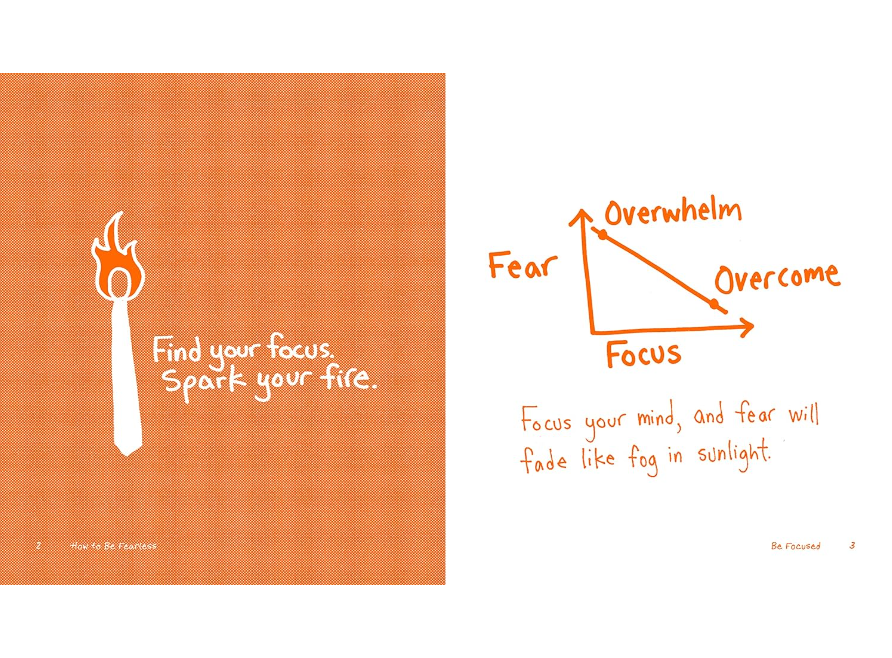 Find your focus.
Spark your fire.
2 How to Be Fearless
Overwhelm
Fear
Overcome
Focus
Focus your mind, and fear will
fade like fog in sunlight.
Be Focused 3